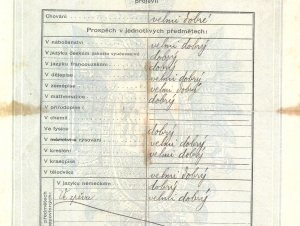 projevil
Chování velmi dobré
Prospěch v jednotlivých předmětech:
V náboženství velmi dobrý
V jazyku českém dobrý
V jazyku francouzském dobrý
V dějepise velmi dobrý
V zeměpise velmi dobrý
V mathematice dobrý
V přírodopise
V chemii
Ve fysice dobrý
V rýsování velmi dobrý
V kreslení velmi dobrý
V krasopise
V tělocviku velmi dobrý
V jazyku německém dobrý
Ve zpěvu velmi dobrý